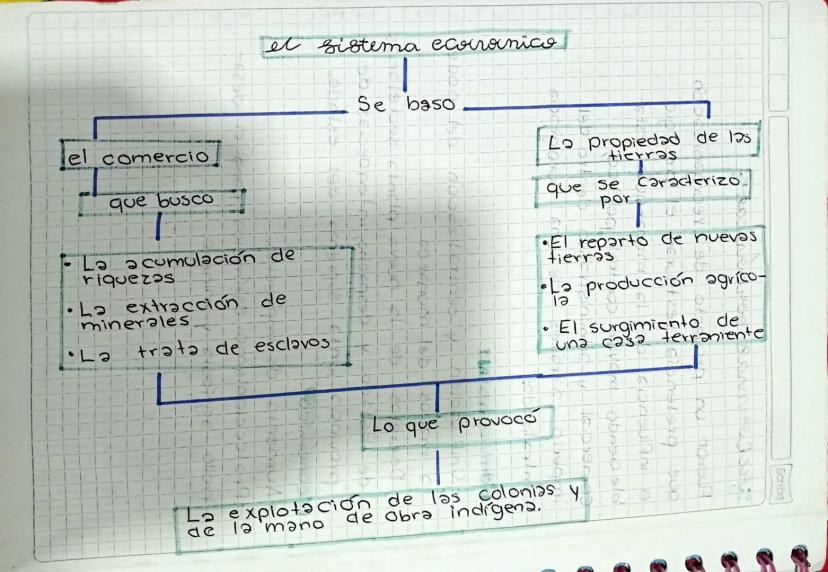 el sistema economico
Se baso
el comercio
que busco
• La acumulación de
riquezas
• La extracción de
minerales
• La trata de esclavos
La propiedad de las
tierras
que se caracterizo
por
• El reparto de nuevas
tierras
• La producción agríco-
la
• El surgimiento de
una casa terraniente
Lo que provocó
La explotación de las colonias y
de la mano de obra indígena.
Scribe